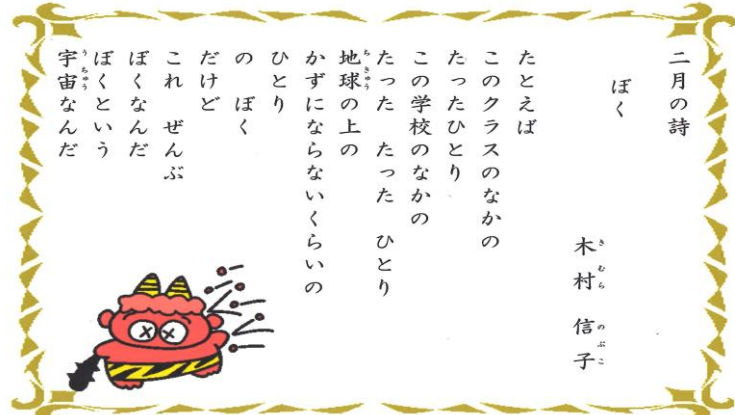 二月の詩
ぼく
木村 信子
たとえば
このクラスのなかの
たったひとり
この学校のなかの
たった たった ひとり
地球の上の
かずにならないくらいの
ひとり
の ぼく
だけど
これ ぜんぶ
ぼくなんだ
ぼくという
宇宙なんだ